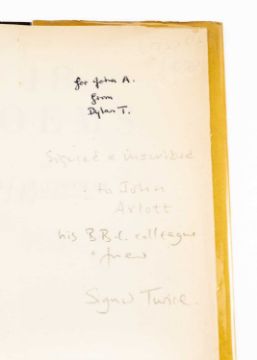 for John A.
from
Dylan T.
Signed & inscribed
to John
Arlott
his B.B.C. colleague
Signed Twice.